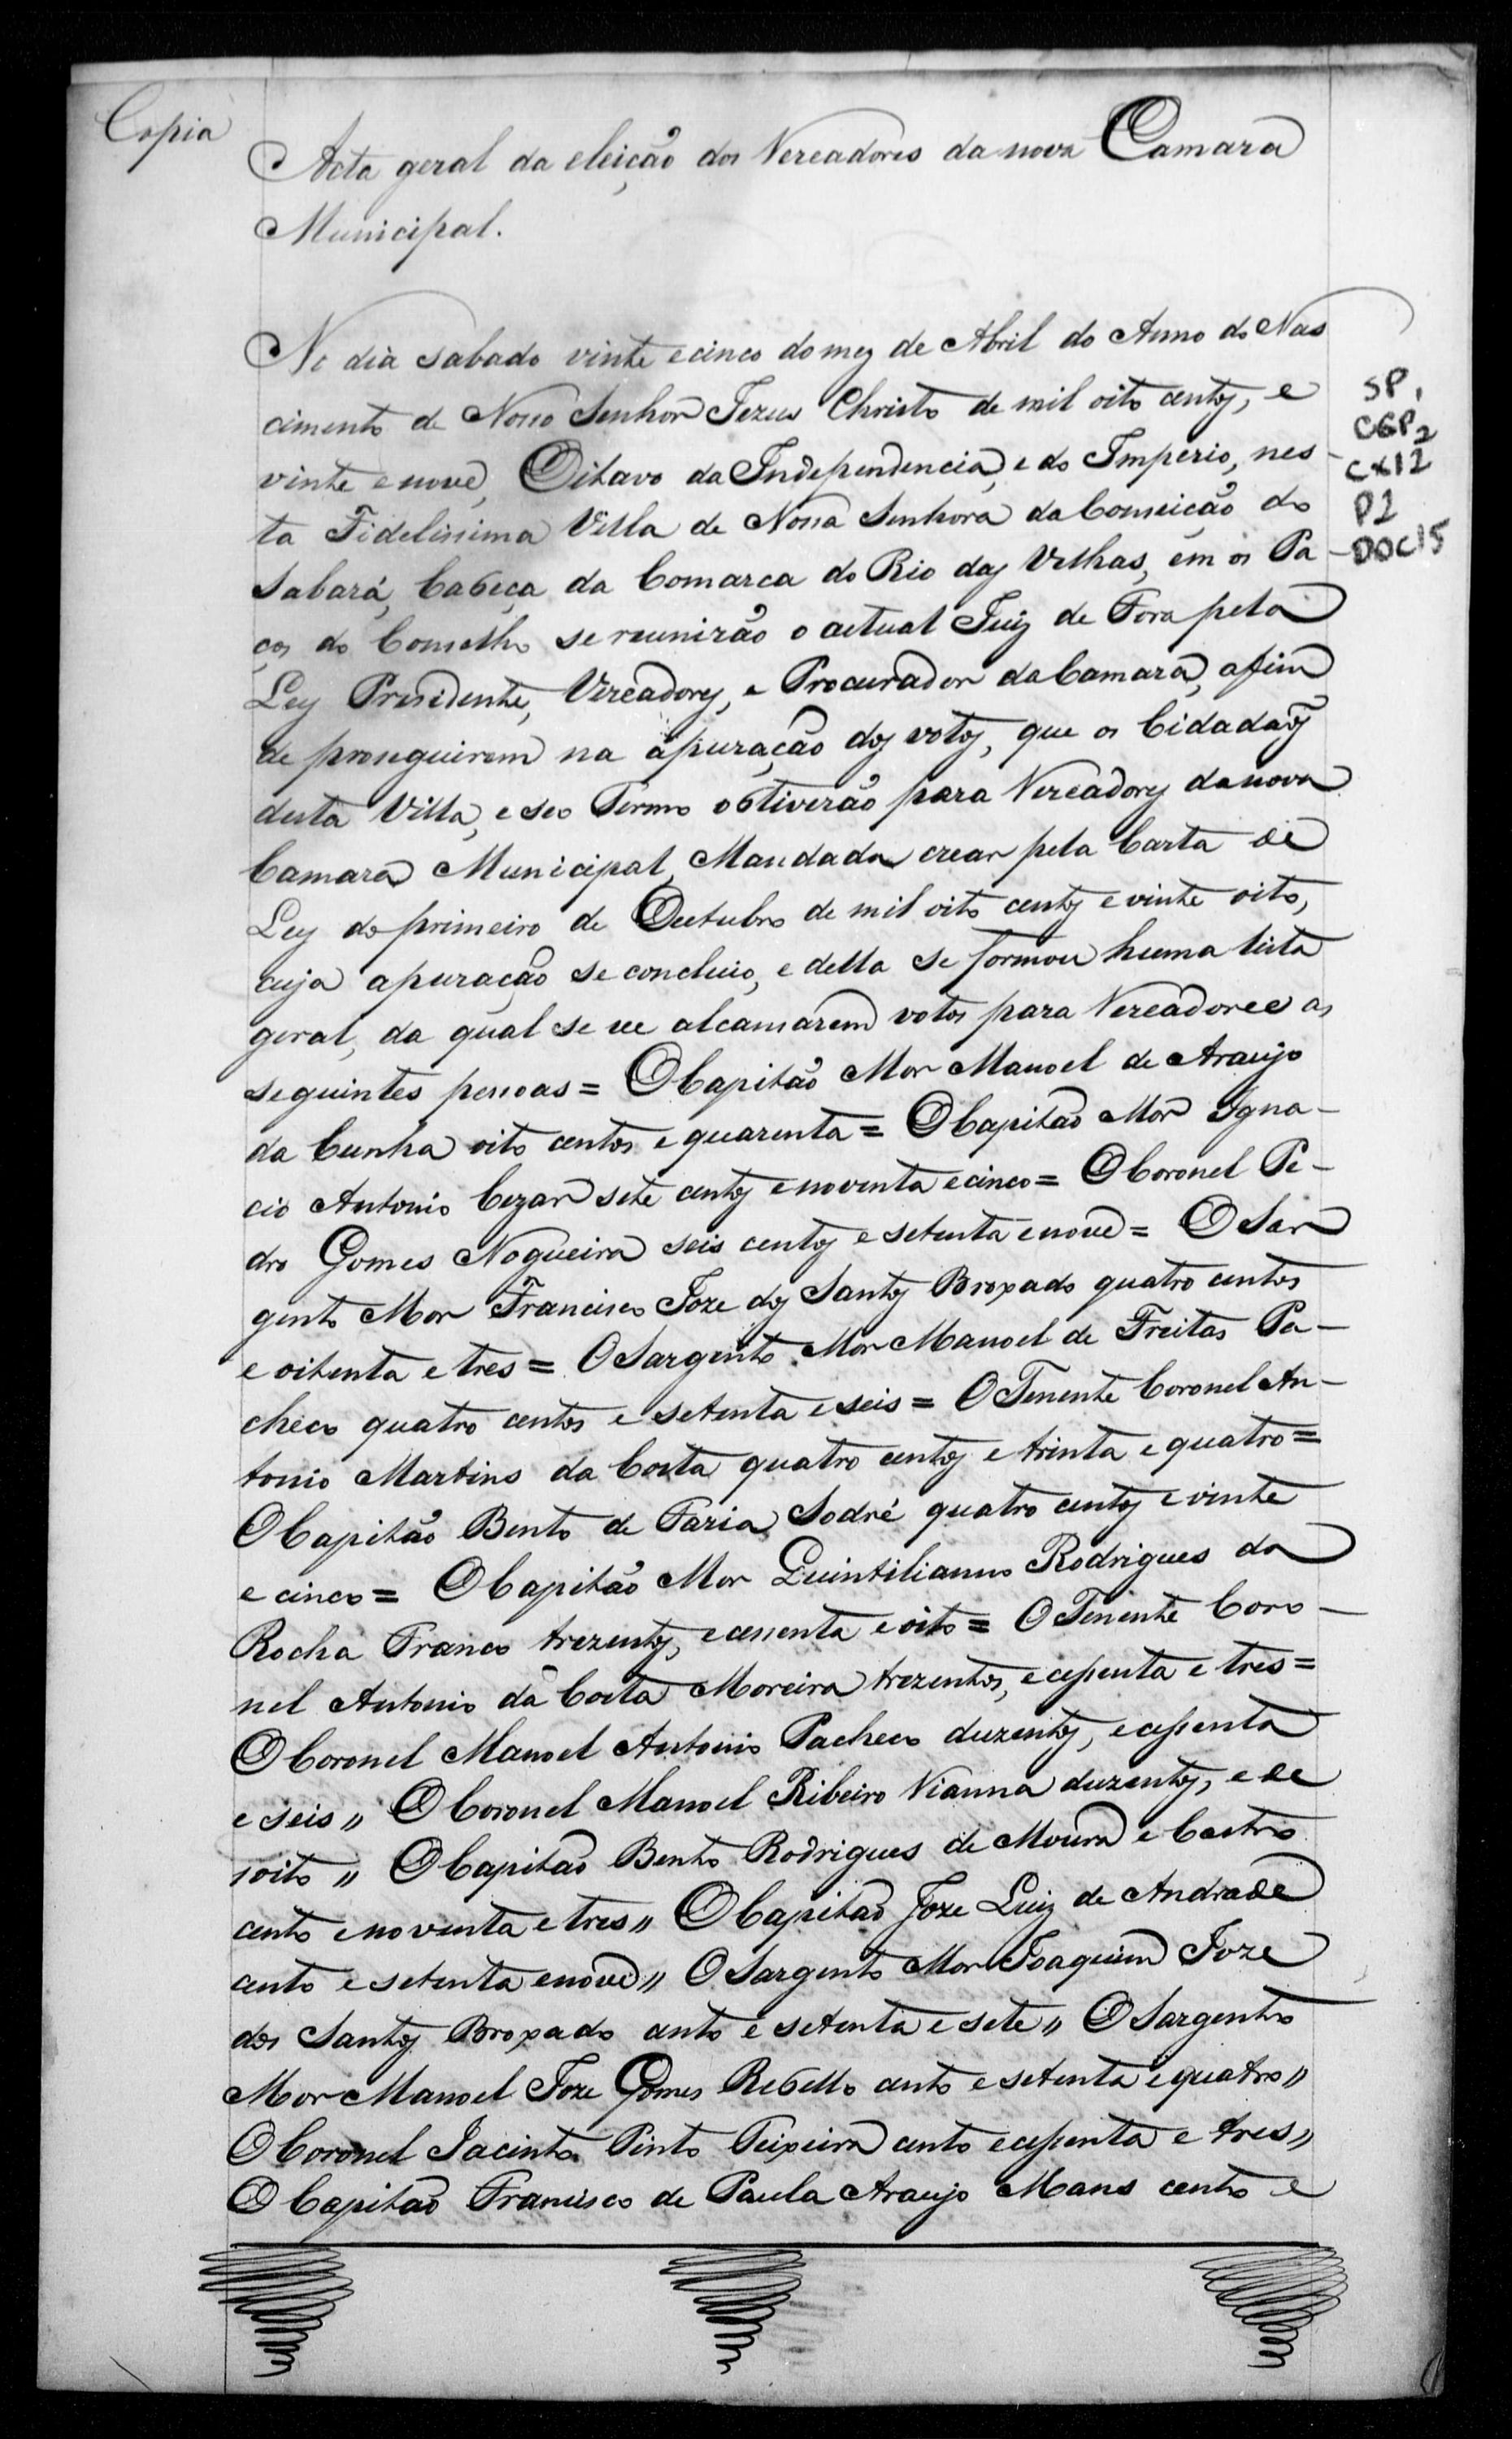 Copia
Acta geral da eleição dos Vereadores da nova Camara
Municipal.
No dia sabado vinte e cinco do mez de Abril do Anno do Nas
cimento de Nosso Senhor Jezus Christo de mil oito centos, e
vinte e nove, Oitavo da Independencia, e do Imperio, nes
ta Fidelissima Villa de Nossa Senhora da Conceição do
Sabará, Cabeça da Comarca do Rio das Velhas, em os Pa
ços do Conselho se reunirão o actual Juiz de Fora pela
Ley Presidente, Vereadores, e Procurador da Camara, afim
de proseguirem na apuração dos votos, que os Cidadãos
desta Villa, e seo Termo obtiverão para Vereadores da nova
Camara Municipal, Mandada crear pela Carta de
Ley do primeiro de Outubro de mil oito centos e vinte oito,
cuja apuração se concluio, e della se formou huma lista
geral, da qual se ve alcansarem votos para Vereadores as
seguintes pessoas = O Capitão Mor Manoel de Araujo
da Cunha oito centos e quarenta = O Capitão Mor Igna-
cio Antonio Cezar sete centos e noventa e cinco = O Coronel Pe-
dro Gomes Nogueira seis centos e setenta e nove = O Sar
gento Mor Francisco Joze dos Santos Broxado quatro centos
e oitenta e tres = O Sargento Mor Manoel de Freitas Pa-
checo quatro centos e setenta e seis = O Tenente Coronel An-
tonio Martins da Costa quatro centos e trinta e quatro =
O Capitão Bento de Faria Sodré quatro centos e vinte
e cinco = O Capitão Mor Quintilianno Rodrigues da
Rocha Franco trezentos, e cessenta e oito = O Tenente Coro-
nel Antonio da Costa Moreira trezentos, e cessenta e tres =
O Coronel Manoel Antonio Pacheco duzentos, e cessenta
e seis " O Coronel Manoel Ribeiro Vianna duzentos, e de
soito " O Capitão Bento Rodrigues de Moura e Castro
cento e noventa e tres " O Capitão Joze Luiz de Andrade
cento e setenta e nove " O Sargento Mor Joaquim Joze
dos Santos Broxado cento e setenta e sete " O Sargento
Mor Manoel Joze Gomes Rebello cento e setenta e quatro "
O Coronel Jacinto Pinto Teixeira cento e cessenta e tres "
O Capitão Francisco de Paula Araujo Mans cento e
SP,
CGP2
CX12
P1
DOC15